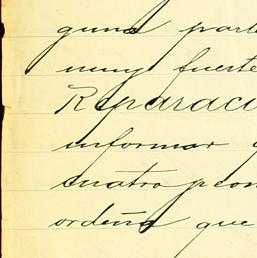 guna parte
muy fuerte
Reparaci
informar q
cuatro peon
ordeña que